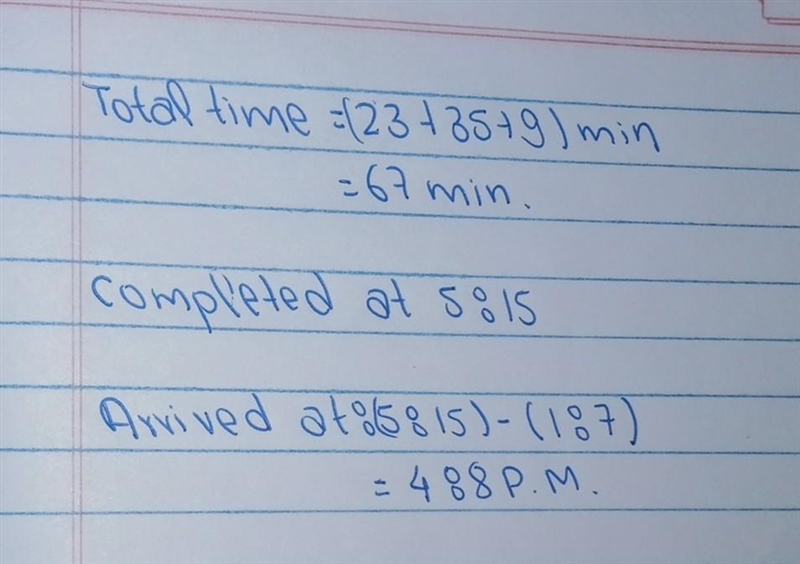 Total time =(23+35+9) min
=67 min.
Completed at 5:15
Arrived at:(5:15)-(1:7)
= 4:8 P.M.